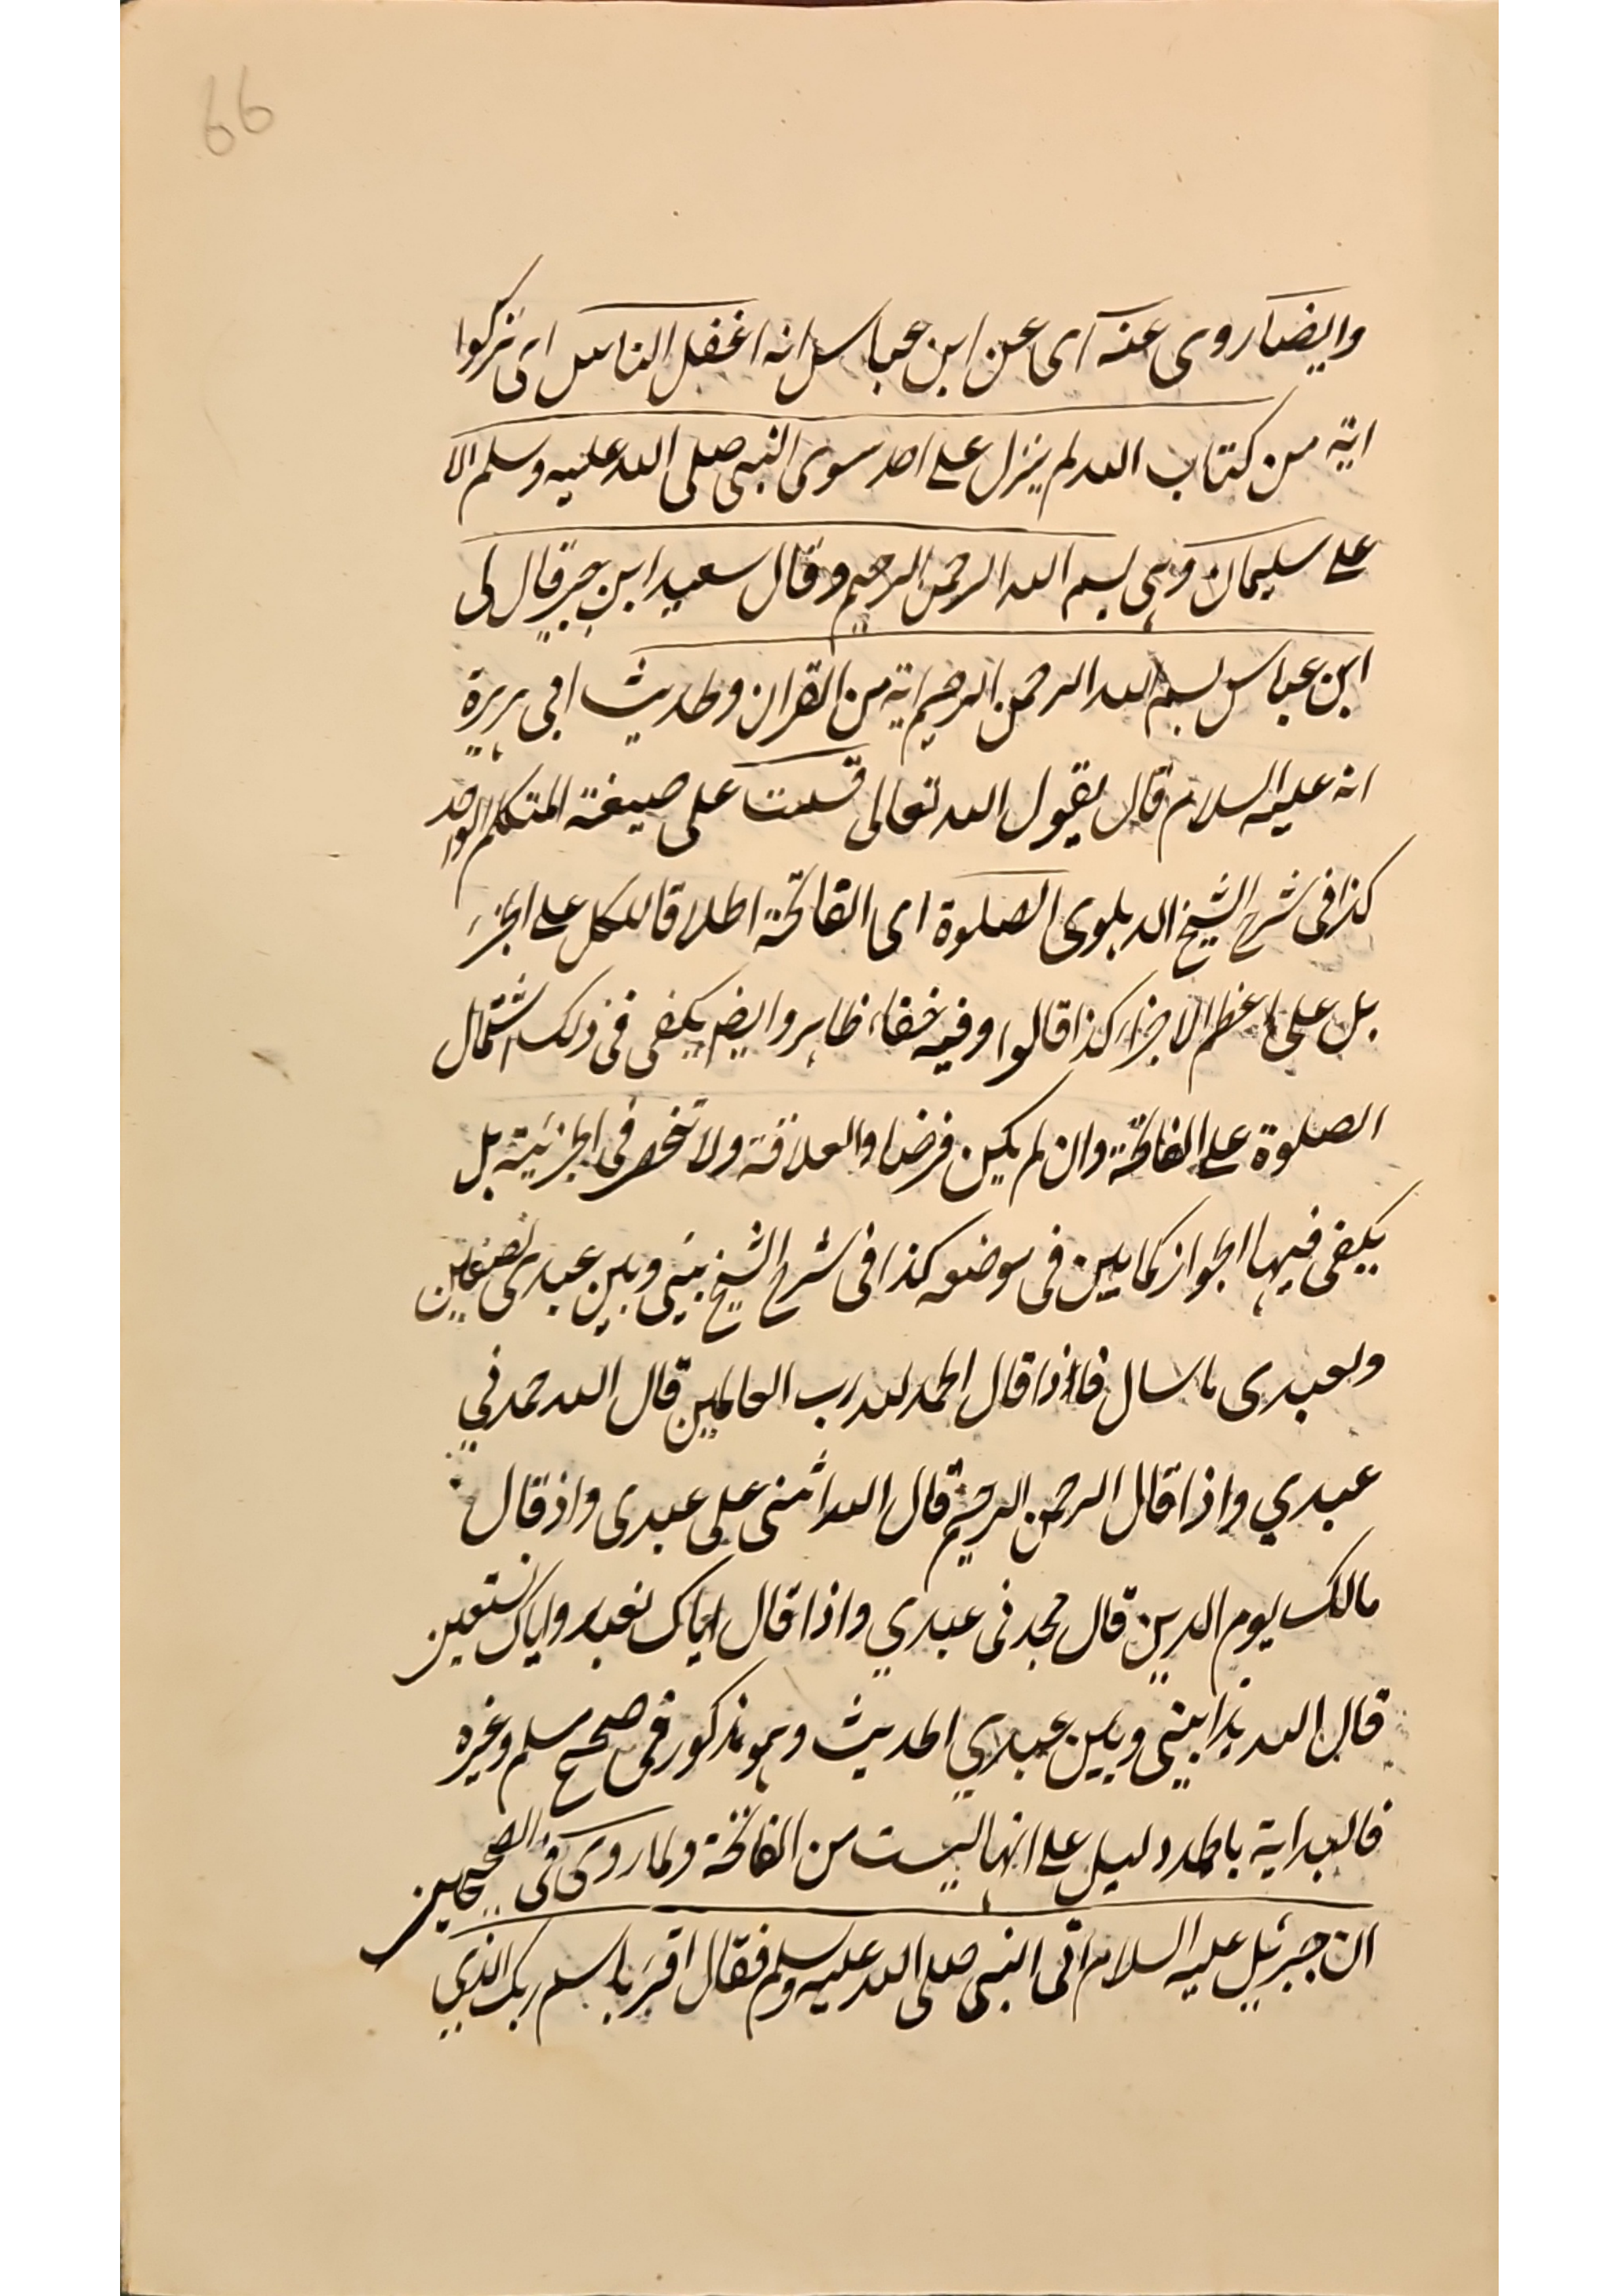 66
وایضا روی عنه ای عن ابن عباس انه اغفل الناس ای ترکوا
ایة من کتاب الله لم ینزل علی احد سوی النبی صلی الله علیه وسلم الا
علی سلیمان وهی بسم الله الرحمن الرحیم وقال سعید ابن جبیر قال لی
ابن عباس بسم الله الرحمن الرحیم ایة من القران ولحدیث ابی هریرة
انه علیه السلام قال یقول الله تعالی قسمت علی صیغة المتکلم الواحد
کذا فی شرح الشیخ الدهلوی الصلوة ای الفاتحة اطلاقا للکل علی الجزء
بل علی اعظم الاجزاء کذا قالوا وفیه خفاء ظاهر وایضا یکفی فی ذلک اشتمال
الصلوة علی الفاتحة وان لم یکن فرضا والعلاقة ولا تنحصر فی الجزئیة بل
یکفی فیها الجواز کما بین فی موضعه کذا فی شرح الشیخ بینی وبین عبدی نصفین
ولعبدی ما سال فاذا قال الحمد لله رب العالمین قال الله حمدنی
عبدی واذا قال الرحمن الرحیم قال الله اثنی علی عبدی واذ قال
مالک یوم الدین قال مجدنی عبدی واذا قال ایاک نعبد وایاک نستعین
قال الله هذا بینی وبین عبدی الحدیث وهو مذکور فی صحیح مسلم وغیره
فالبدایة بالحمد دلیل علی انها لیست من الفاتحة ولما روی فی الصحیحین
ان جبرئیل علیه السلام اتی النبی صلی الله علیه وسلم فقال اقرء باسم ربک الذی